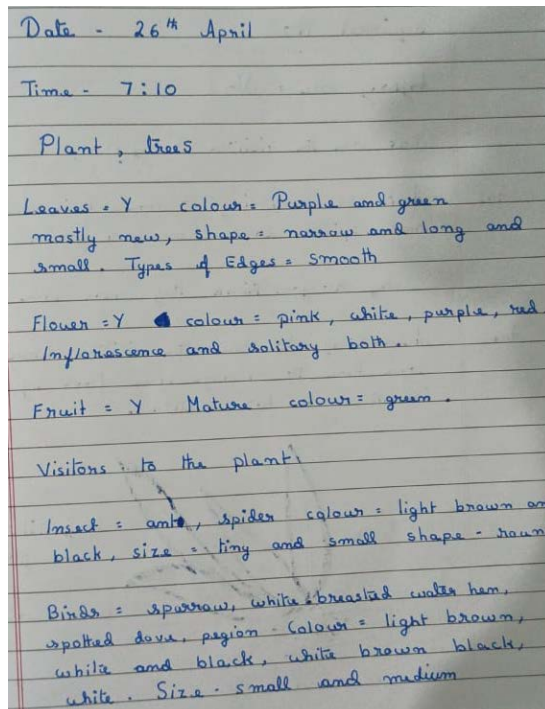 Date - 26th April
Time - 7:10
Plant, trees
Leaves = Y colour = Purple and green
mostly new, shape = narrow and long and
small. Types of Edges = Smooth
Flower = Y colour = pink, white, purple, red
Inflorescence and solitary both.
Fruit = Y Mature colour = green.
Visitors to the plant
Insect = ant, spider colour = light brown an
black, size = tiny and small shape - roun
Birds = sparrow, white breasted water hen,
spotted dove, pegion - Colour = light brown,
white and black, white brown black,
white. Size - small and medium